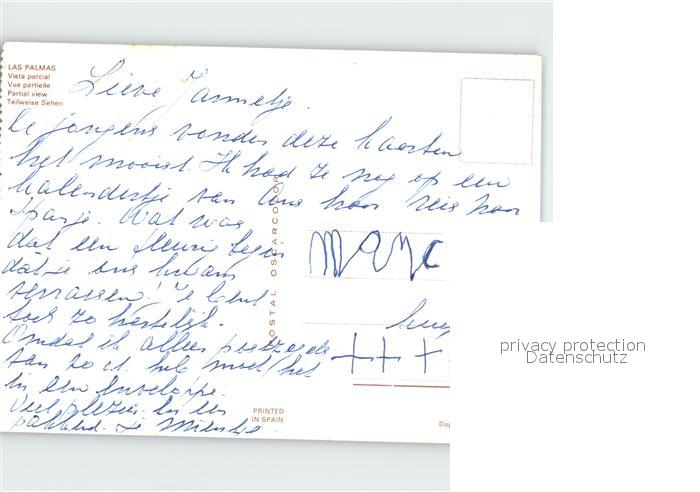 LAS PALMAS
Vista parcial
Vue partielle
Partial view
Teilweise Sehen
Lieve Jannetje.
De jongens vonden deze kaarten
het mooist. Ik had ze nog op een
kalendertje van Ons hoor reis naar
Spanje. Wat was
dat een fleurig begin
dat je ons kwam
verrassen! Je bent
toch zo hartelijk.
Omdat ik alleen postzegels
van 20 ct. heb moet het
in een enveloppe.
Veel plezier en een
pakkerd. Je Mientje.
POSTAL OSCARCOLOR
Marc
+++
PRINTED
IN SPAIN
privacy protection
Datenschutz